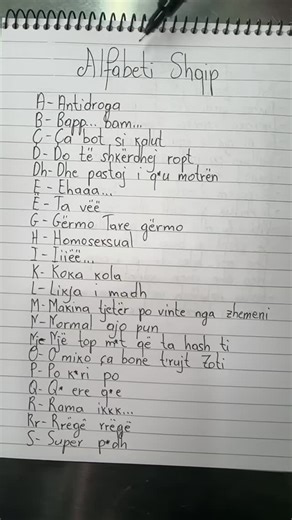 Alfabeti Shqip
A- Antidroga
B- Bapp... bam...
Ç- Ça bot si kalut
D- Do të shkërdhej ropt
Dh- Dhe pastaj i q*u motrën
E - Ehaaa...
Ë- Ta vëë
G- Gërmo Tare gërmo
H- Homoseksual
I- Iiiëë...
K- Koka kola
L- Likja i madh
M- Makina tjetër po vinte nga zhemeni
N- Normal ajo pun
Nje- Një top m*t që ta hash ti
O- O'miko ça bone t'rujt Zoti
P- Po k*ri po
Q- Q* ere q*e
R- Rama ikkk...
Rr- Rrëgë rrëgë
S- Super p*dh